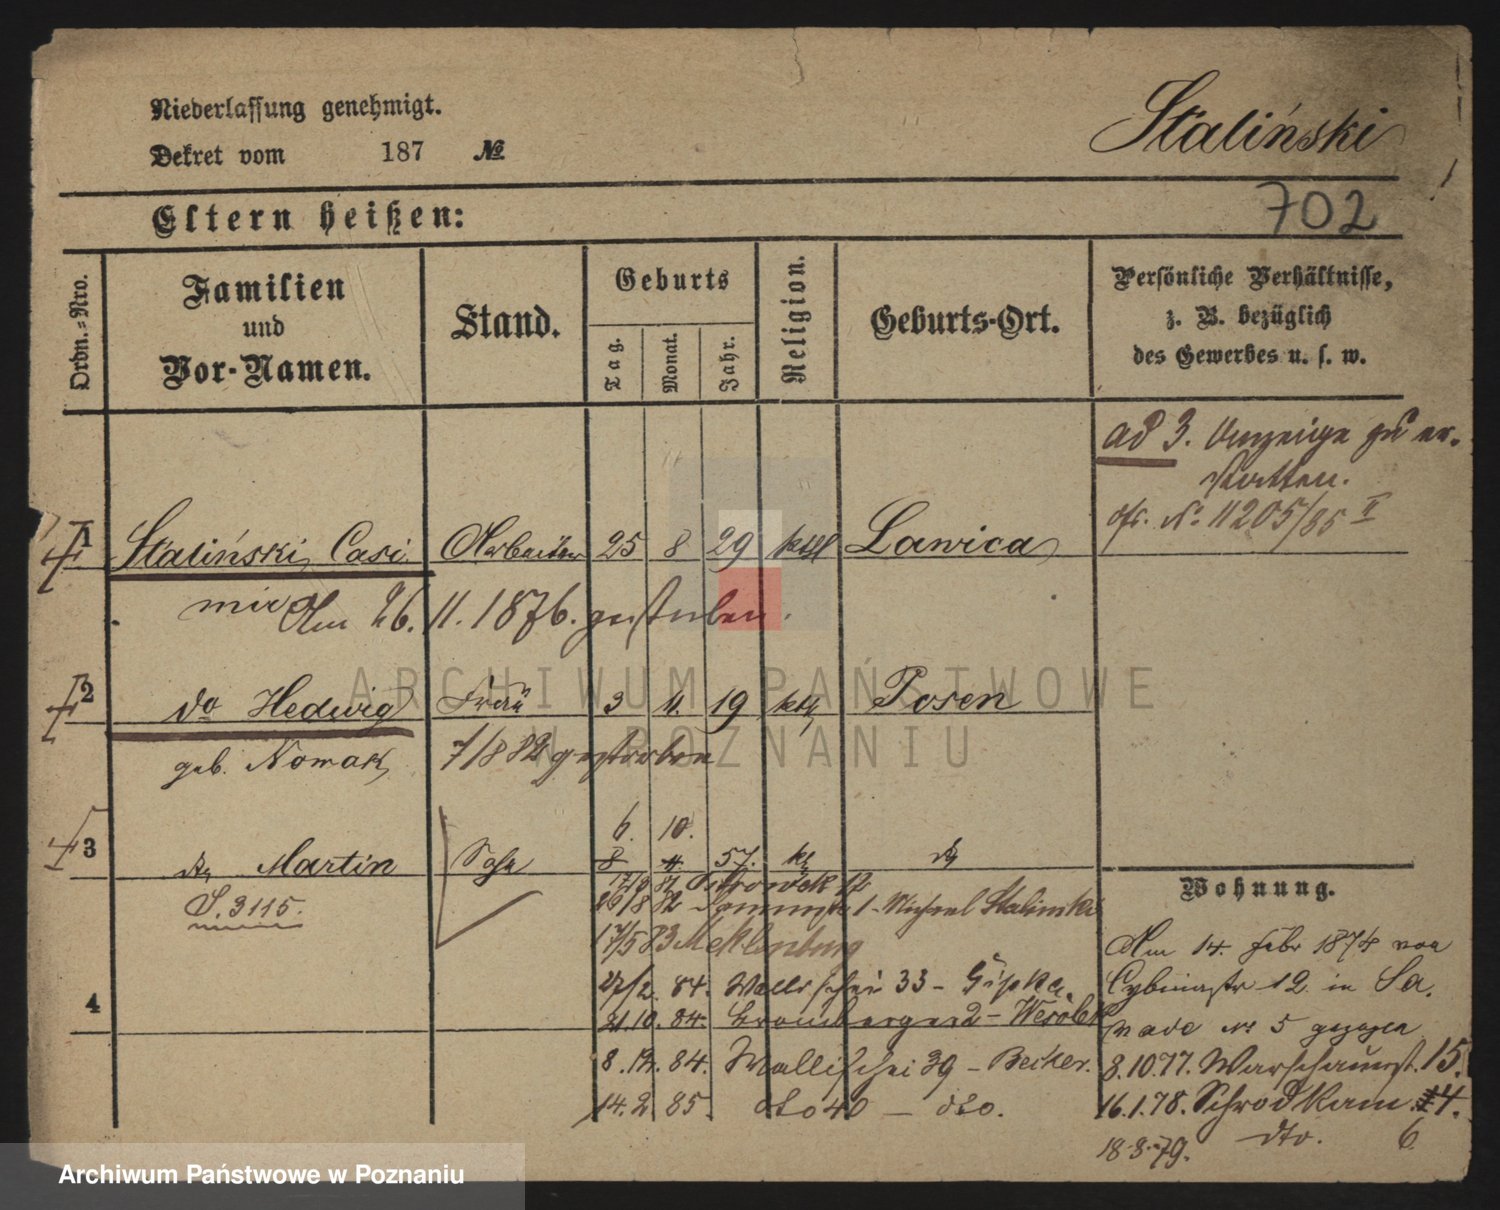 Niederlassung genehmigt.
Staliński
Dekret vom 187 №
702
Eltern heißen:
Ordn.=Nro.
Familien und Vor-Namen.
Stand.
Geburts
Tag.
Monat.
Jahr.
Religion.
Geburts-Ort.
Persönliche Verhältnisse,
z. B. bezüglich
des Gewerbes u. s. w.
ad 3. Anzeige zu er-
statten.
№ 11205/85 II
1 Staliński Casi Arbeiter 25 8 29 kth Lawica
mir Am 26. 11. 1876. gestorben.
2 do Hedwig Frau 3 11. 19 kth Posen
geb. Nowak 7/8 82 gestorben
6. 10.
3 do Martin Sohn 8 4 57. k do
S. 3115.
12
26/8 82 1 - Michael Stalinski
17/5 83 Mecklenburg
4
27/2. 84. Wallischei 33 -
21.10. 84. Bromberger 2 - Wesolek
8. 12. 84. Wallischei 39 - Becker.
14. 2. 85. dto 40 - dto.
Wohnung.
Am 14. Febr 1874 von
Cybinastr 12 in Sa.
wade № 5 gezogen
8.10.77. Warschauerst. 15.
16.1.78. Schrodkam. 4.
18.3.79. dto. 6
ARCHIWUM PAŃSTWOWE
W POZNANIU
Archiwum Państwowe w Poznaniu